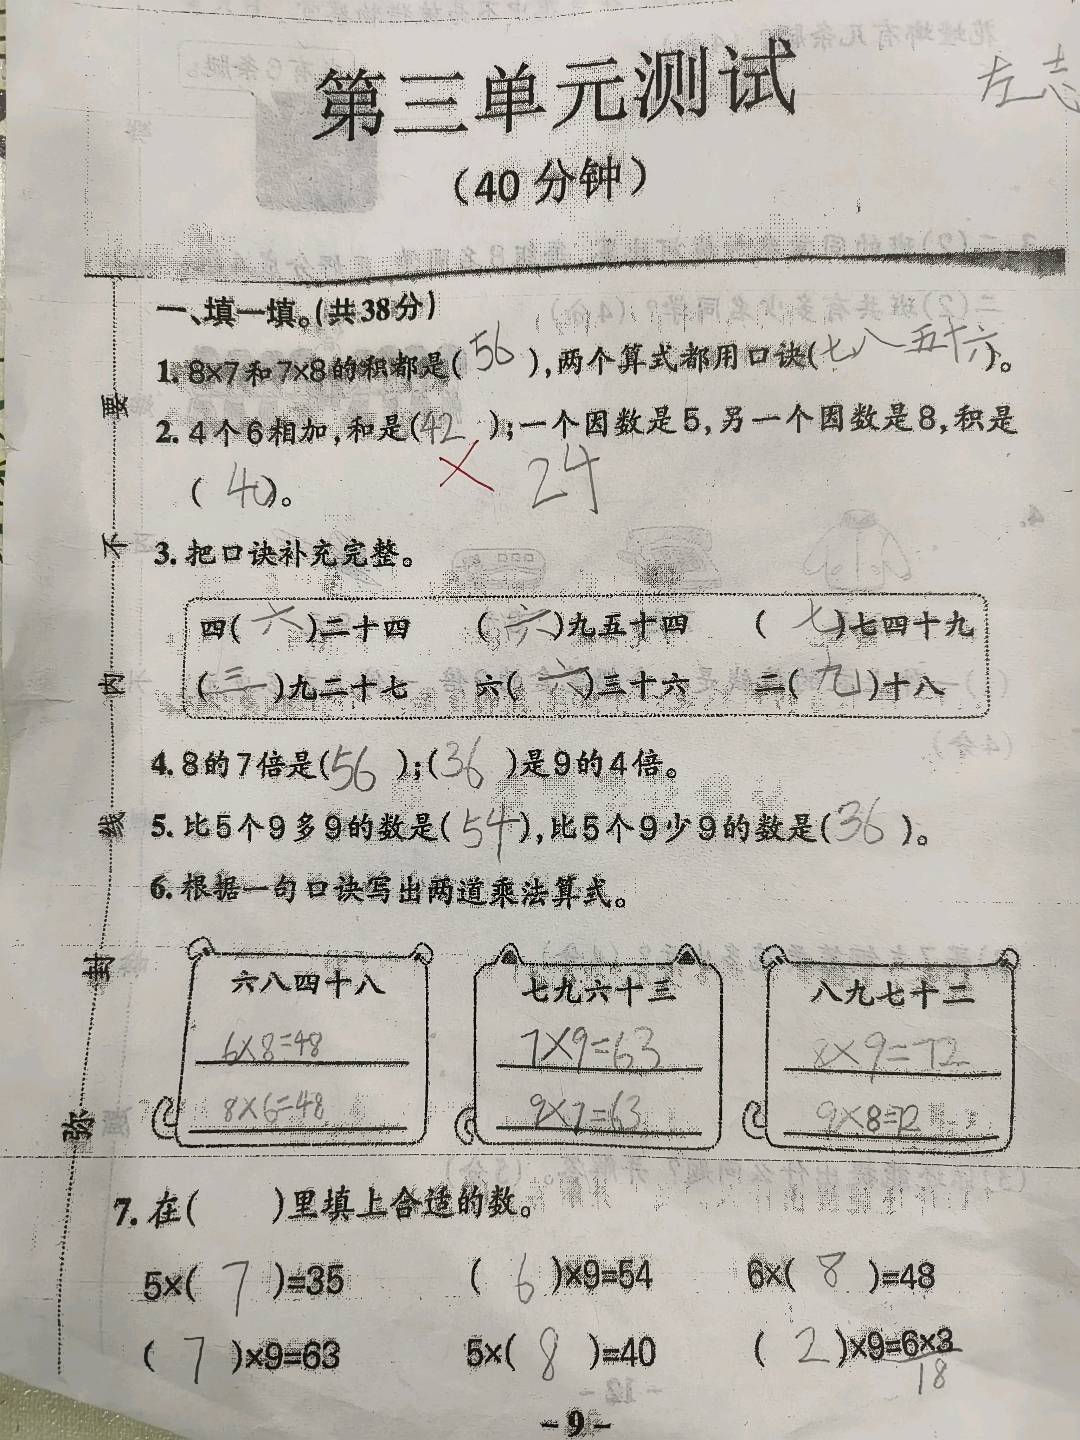 左志
第三单元测试
(40分钟)
一、填一填。(共38分)
1. 8×7和7×8的积都是(56),两个算式都用口诀(七八五十六)。
2. 4个6相加,和是(42);一个因数是5,另一个因数是8,积是
(40)。
× 24
3. 把口诀补充完整。
四(六)二十四 (六)九五十四 (七)七四十九
(三)九二十七 六(六)三十六 二(九)十八
4. 8的7倍是(56);(36)是9的4倍。
5. 比5个9多9的数是(54),比5个9少9的数是(36)。
6. 根据一句口诀写出两道乘法算式。
六八四十八 七九六十三 八九七十二
6×8=48 7×9=63 8×9=72
8×6=48 9×7=63 9×8=72
7. 在( )里填上合适的数。
5×(7)=35 (6)×9=54 6×(8)=48
(7)×9=63 5×(8)=40 (2)×9=6×3
18
- 9 -
弥 封 线 内 不 要